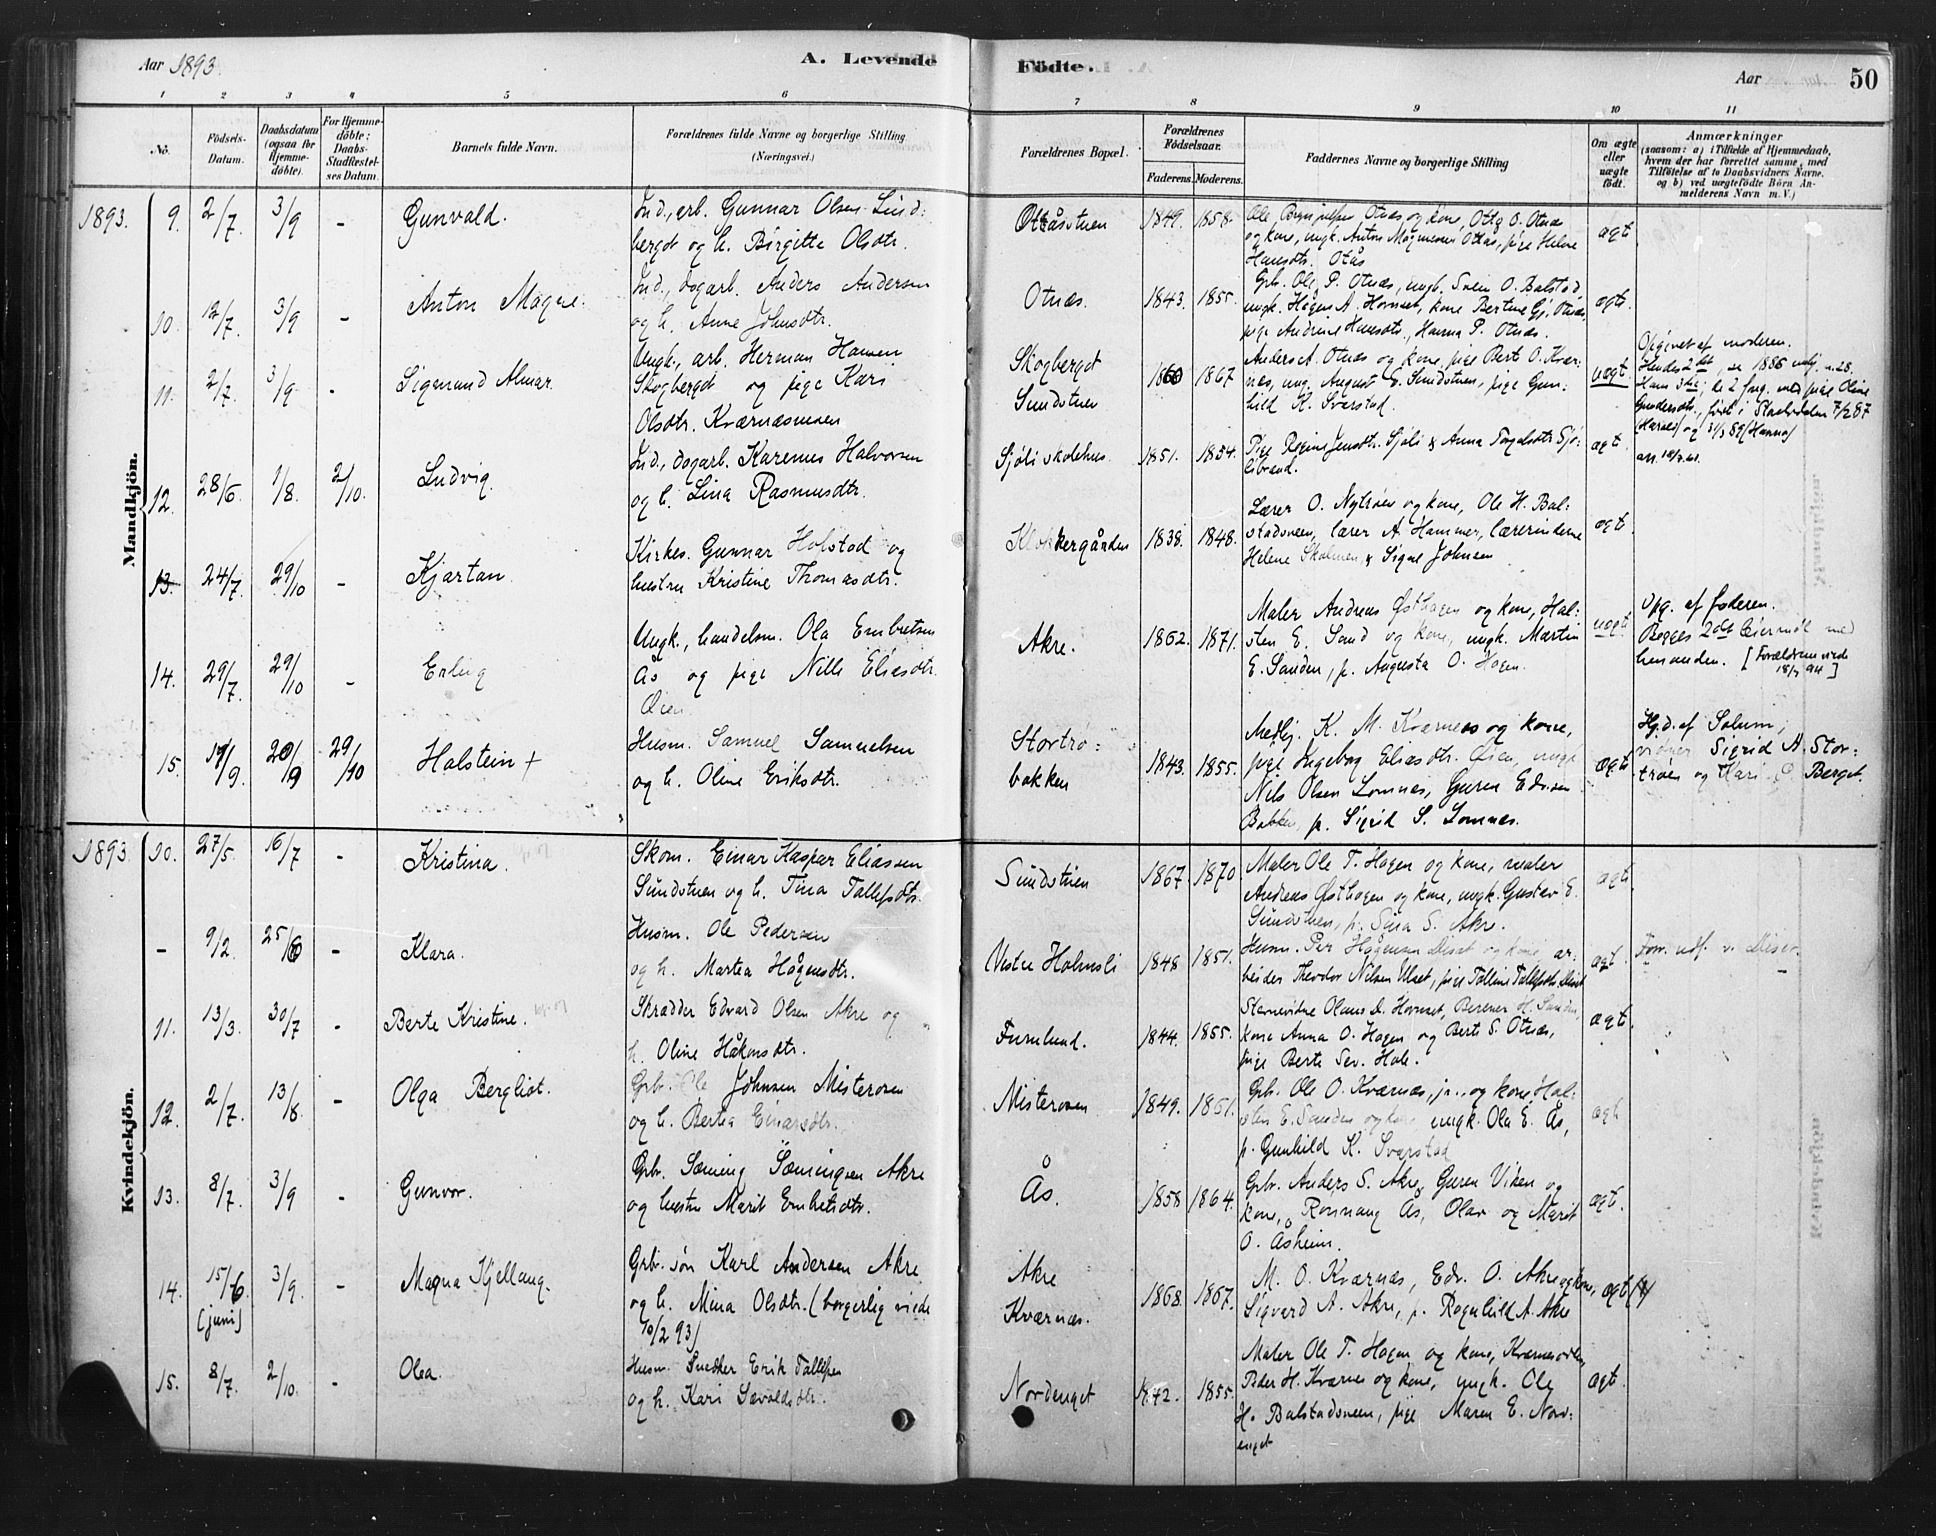 Aar 1893
A. Levende
Födte.
Aar
50
1 2 3 4 5 6 7 8 9 10 11
No.
Födsels-
Datum.
Daabsdatum
(ogsaa for
Hjemme-
döbte).
For Hjemme-
döbte:
Daabs-
Stadfæstel-
ses Datum.
Barnets fulde Navn.
Forældrenes fulde Navne og borgerlige Stilling
(Næringsvei.)
Forældrenes Bopæl.
Forældrenes
Födselsaar.
Faderens. Moderens.
Faddernes Navne og borgerlige Stilling
Om ægte
eller
uægte
födt.
Anmærkninger
(saasom: a) i Tilfælde af Hjemmedaab,
hvem der har forrettet samme, med
Tilföielse af to Daabsvidners Navne.
og b) ved uægtefödte Börn An-
melderens Navn m. V.)
Mandkjön.
1893. 9. 2/7 3/9 - Gunvald.
Ind., arb. Gunnar Olsen Lind:
berget og h. Birgitte Olsdtr.
Ottåstuen 1849. 1858.
Otnæs og kone, Otto O. Otnæs
og kone, ungk. Anton Magnusen Ottås, pige Helene
Hansdtr. Otås
ægt
10. 12/7 3/9 - Anton Magne.
Ind., dagarb. Anders Andersen
og h. Anne Johnsdtr.
Otnæs. 1843. 1855.
Grb. Ole P. Otnæs, ungk. Svein O. Balstad,
ungk. Hågen A. Hornset, kone Bertine G. Otnæs,
pige Andrine Hansdtr., Hanna P. Otnæs.
ægte
11. 2/7 3/9 - Sigmund Almar.
Ungk., arb. Herman Hansen
Skogberget og pige Kari
Olsdtr. Kværnæsmoen
Skogberget
Sundstuen
1860 1867
Anders A. Otnæs og kone, pige Berit O. Kvær-
næs, ung. August E. Sundstuen, pige Gun-
hild K. Svarstad.
uægt.
Opgivet af moderen.
Hendes 2det, se 1886 n. 28.
Hans 3die; de 2 forg. med pige Oline
Gundersdtr., født i 7/2 87
(Harald) og 31/3 89 (Hanna)
12. 28/6 1/8. 2/10. Ludvig.
Ind., dagarb. Karenus Halvorsen
og h. Lina Rasmusdtr.
Sjøli skolehus. 1851. 1854.
Pige Regine Jensdtr. Sjøli & Anna Sjø-
librænd.
ægt.
13. 24/7. 29/10 - Kjartan.
Kirkes. Gunnar Holstad og
hustru Kristine Thomasdtr.
Klokkergården 1838. 1848.
Lærer O. Nytrøen og kone, Ole H. Bal-
stadsneen, lærer A. Hammer, lærerinderne
Helene Skolmen & Signe Johnsen
ægt.
14. 29/7. 29/10 - Erling
Ungk., handelsm. Ola Embretsen
Ås og pige Nille Eliasdtr.
Øien
Akre. 1862. 1871.
Maler Andreas Østhagen og kone, Hal-
sten E. Sand og kone, ungk. Martin
E. Sanden, p. Augusta O. Hagen.
uægt.
Opg. af faderen.
Begges 2det leiermål med
hinanden. [Forældrene viede
18/7 94]
15. 17/9. 20/9 29/10 Halstein +
Husm. Samuel Samuelsen
og h. Oline Eriksdtr.
Stortrø:
bakken
1843. 1855.
Medhj. K. M. Kværnæs og kone,
pige Ingeborg Eliasdtr. Øien, ungk
Nils Olsen Lomnæs, Guren Edvisen
Bakken, p. Sigrid S. Lomnæs.
ægte
Hj.d. af Solum;
vidner Sigrid A. Stor:
trøen og Kari Berget.
Kvindekjön.
1893. 10. 27/5. 16/7 - Kristina.
Skom. Einar Kaspar Eliassen
Sundstuen og h. Tina Tollefsdtr.
Sundstuen 1867 1870
Maler Ole T. Hagen og kone, maler
Andreas Østhagen og kone, ungk. Gustav E.
Sundstuen, p. Sina S. Akre.
ægt.
- 9/2. 25/6 - Klara.
Husm. Ole Pedersen
og h. Martea Hågensdtr.
Vestre Holmsli 1848 1851.
Husm. Per Hågensen Diset og kone, ar-
beider Theodor Nilsen Ulset, pige Talline Tallefsdtr. Diset
ægt.
11. 13/3. 30/7 - Berte Kristine.
Skrædder Edvard Olsen Akre og
h. Oline Håkonsdtr.
Furulund. 1844. 1855.
Stævnevidne Olaus L. Hornset, Berener H. Sanden,
kone Anna O. Hagen og Berte S. Otnæs,
pige Berte Sev. Hole.
ægt.
12. 2/7. 13/8 - Olga Bergliot.
Grb. Ole Johnsen Misterosen
og h. Bertha Einarsdtr.
Misterosen 1849. 1861.
Grb. Ole O. Kværnæs, jr., og kone, Hal:
sten E. Sanden og kone, ungk. Ola E. Ås,
p. Gunhild K. Svarstad
ægt
13. 8/7. 3/9 - Gunvor.
Grb. Sæming Sæmingsen Akre
og hustru Marit Embretsdtr.
Ås. 1858 1864.
Grb. Anders S. Akre, Guren Viken og
kone, Rønnaug Ås, Olav og Marit
O. Åsheim.
ægt.
14. 15/6. (juni) 3/9. - Magna Kjellaug.
Grb. søn Karl Andersen Akre
og h. Mina Olsdtr. (borgerlig viede
10/2 93)
Akre
Kværnæs.
1868. 1867.
M. O. Kværnæs, Edv. O. Akre og kone,
Sigvard A. Akre, p. Ragnhild A. Akre
ægt (!)
15. 8/7. 2/10. - Olea.
Husm. Snedker Erik Tallefsen
og h. Kari Sævaldsdtr.
Nordenget 1855.
Maler Ole T. Hagen og kone,
Peder H. Kværnes og kone, ungk. Ole
H. Balstadsneen, pige Maren E. Nord:
enget
ægt.